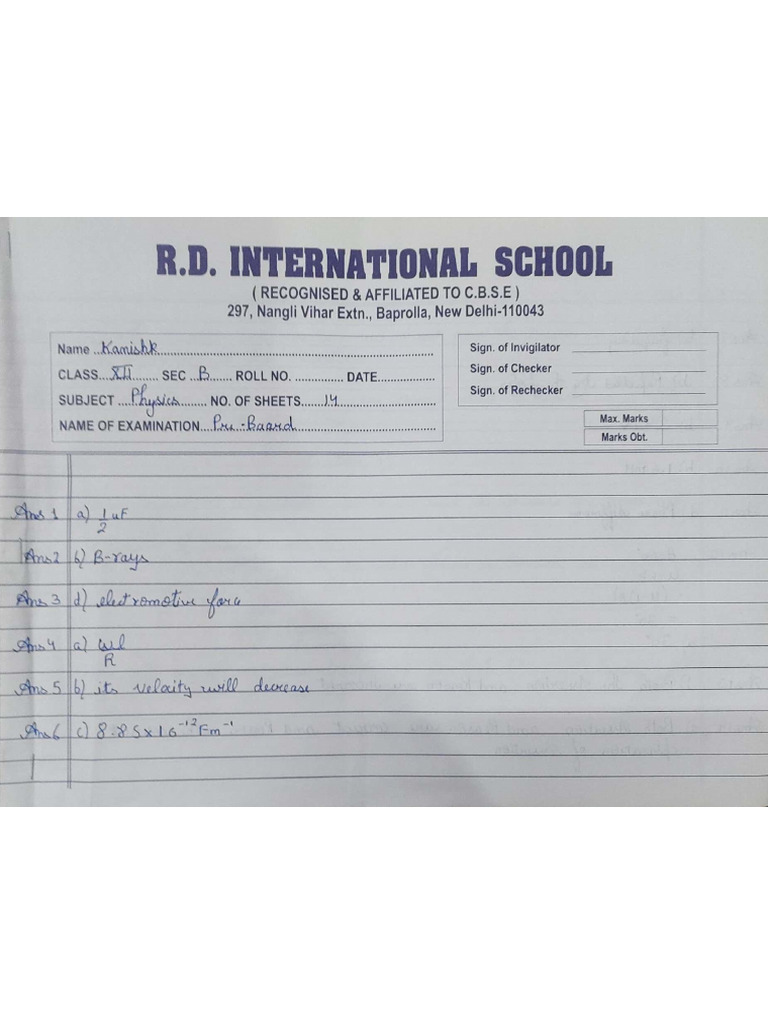 R.D. INTERNATIONAL SCHOOL
( RECOGNISED & AFFILIATED TO C.B.S.E )
297, Nangli Vihar Extn., Baprolla, New Delhi-110043
Name ..Kanishk..........
CLASS...XII...... SEC ..B...... ROLL NO. ............ DATE................
SUBJECT ....Physics......... NO. OF SHEETS.....14.......
NAME OF EXAMINATION...Pre-Board.......
Sign. of Invigilator ____________
Sign. of Checker ____________
Sign. of Rechecker ____________
Max. Marks
Marks Obt.
Ans 1 a) 1/2 uF
Ans 2 b) B-rays
Ans 3 d) electromotive force
Ans 4 a) ωL/R
Ans 5 b) its velocity will decrease
Ans 6 c) 8.85x10⁻¹² Fm⁻¹